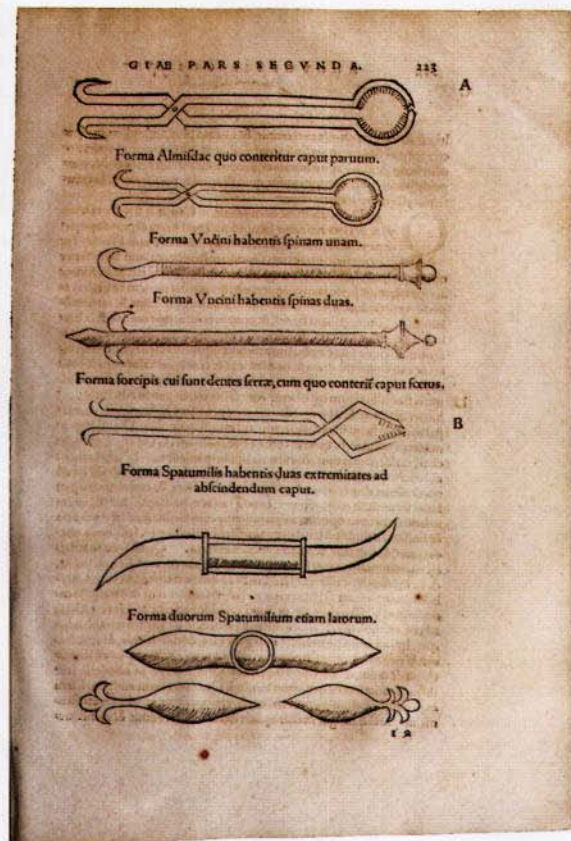 GIAE PARS SECVNDA. 223
A
Forma Almiſdac quo conteritur caput paruum.
Forma Vncini habentis ſpinam unam.
Forma Vncini habentis ſpinas duas.
Forma forcipis cui ſunt dentes ſerræ, cum quo conterit̃ caput fœtus.
B
Forma Spatumilis habentis duas extremitates ad
abſcindendum caput.
Forma duorum Spatumilium etiam latorum.